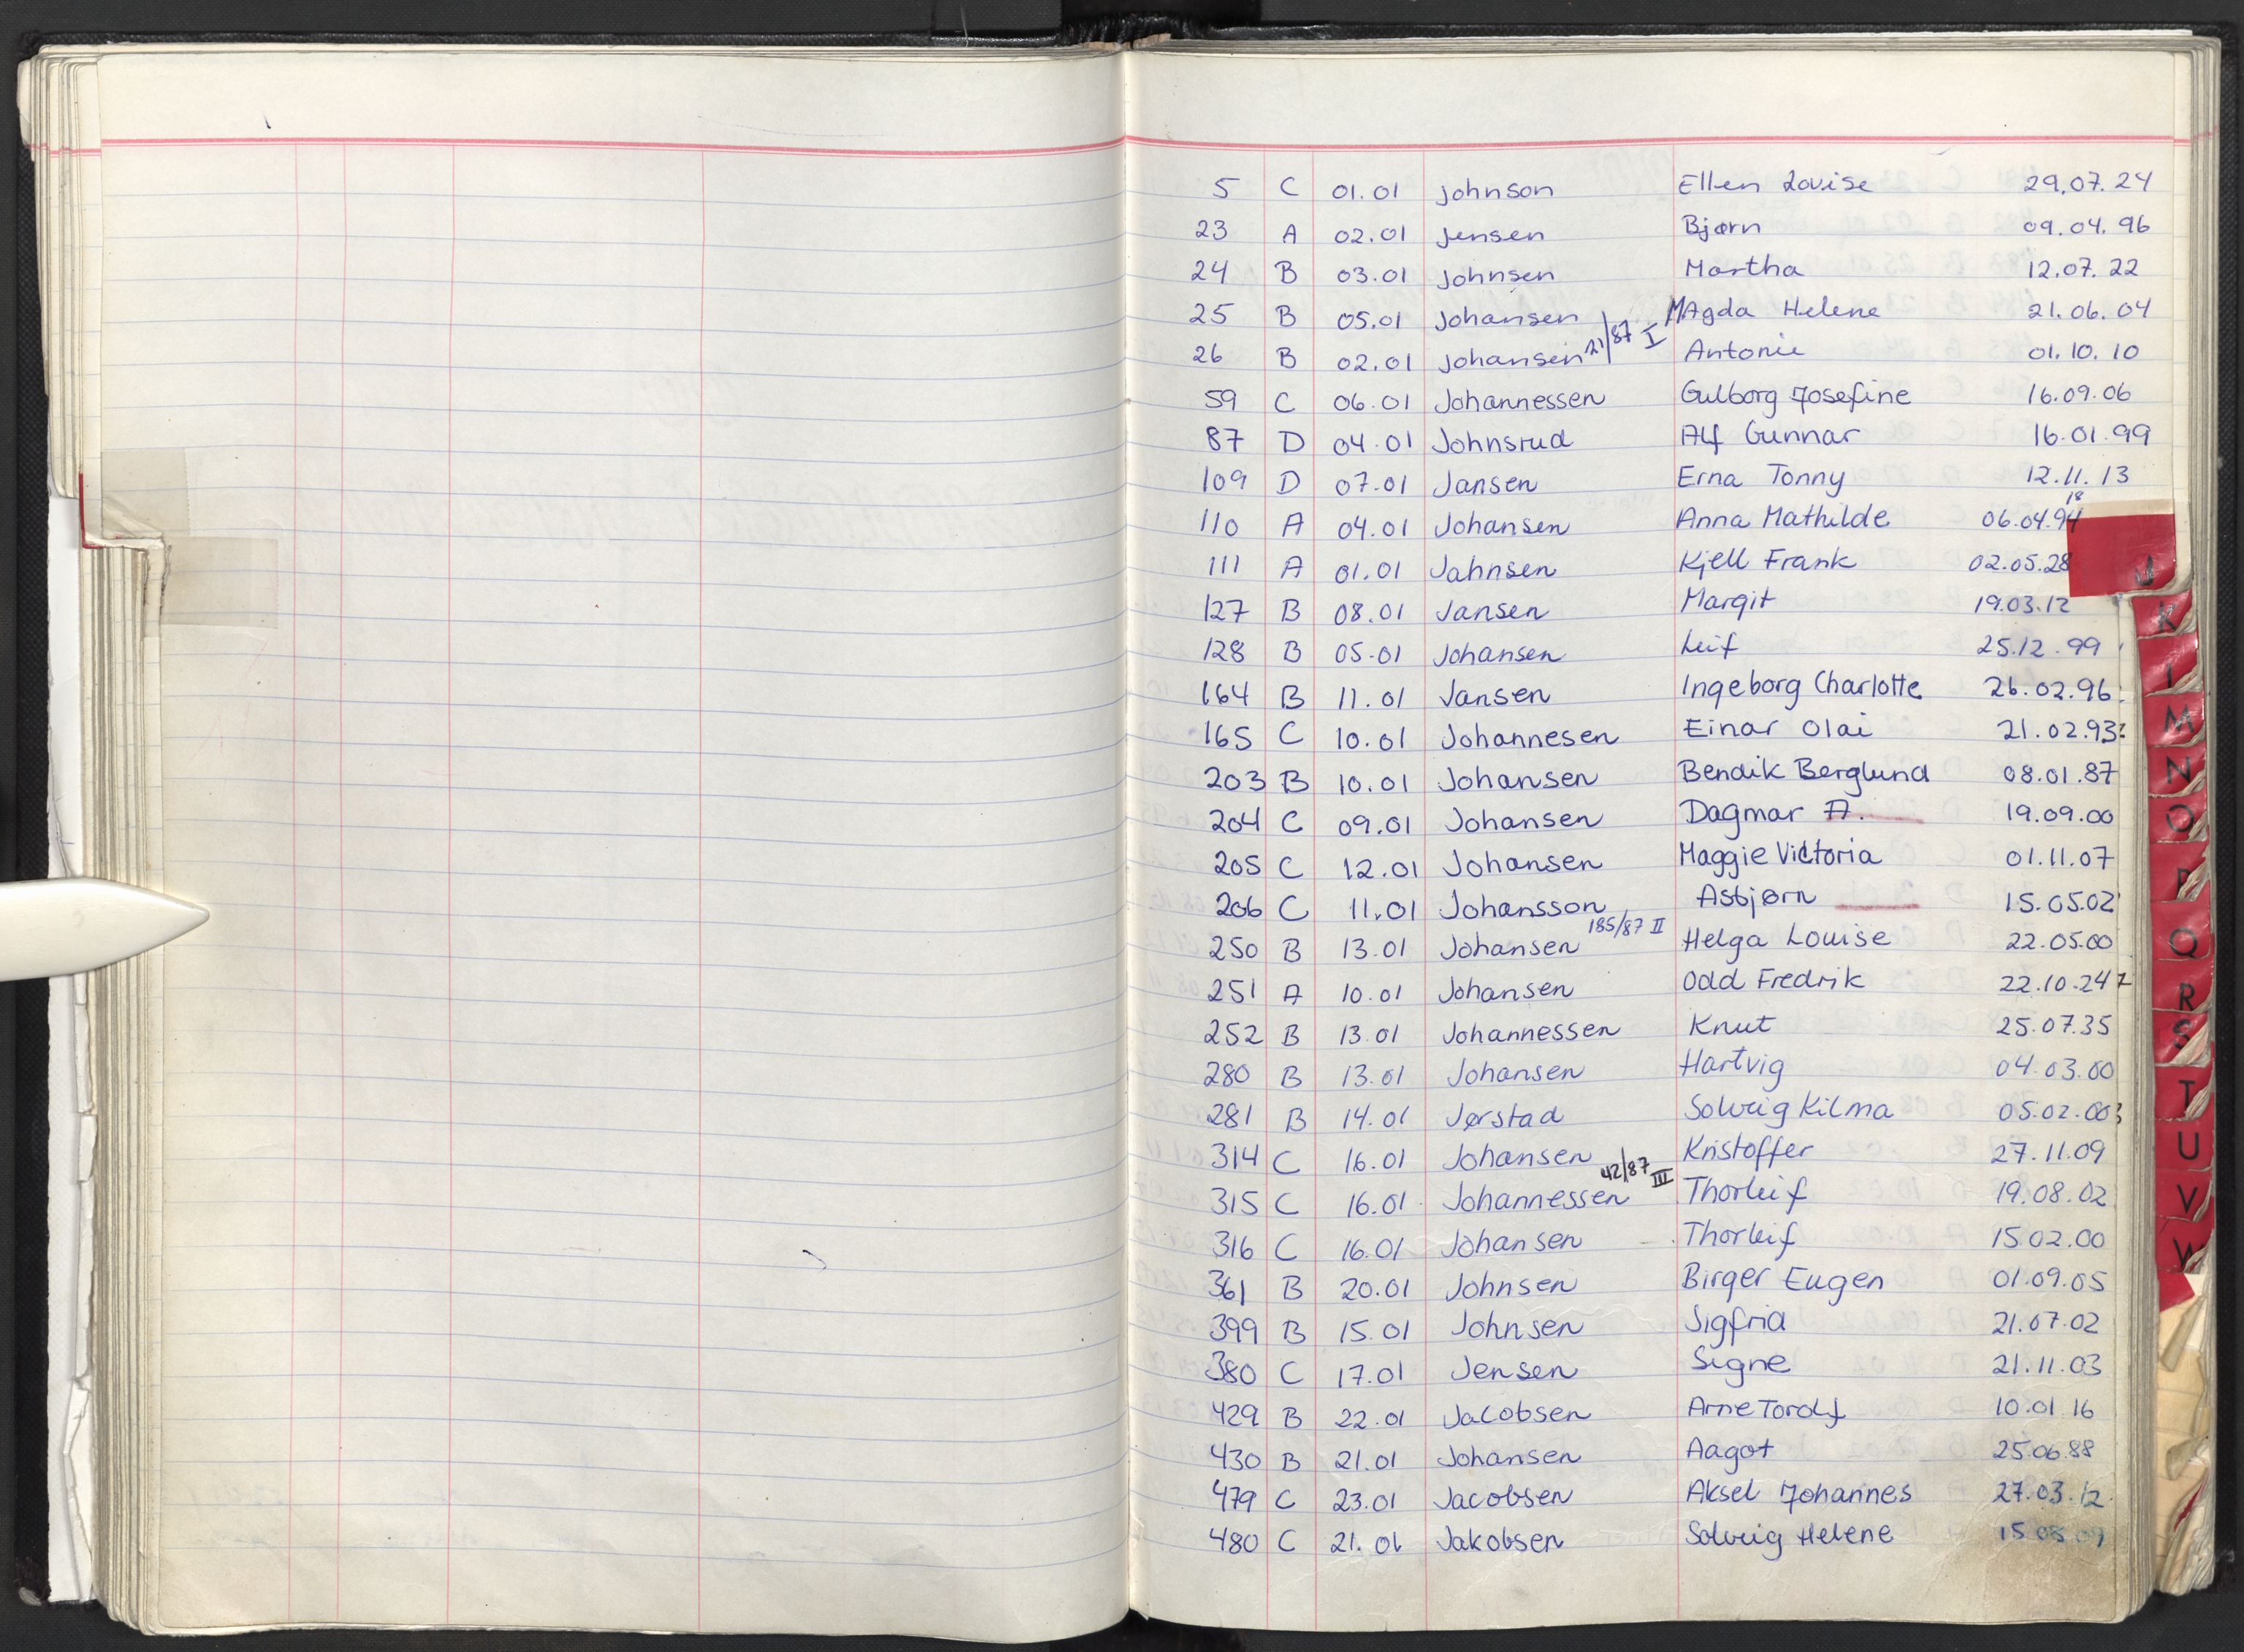 5 C 01.01 Johnson Ellen Lovise 29.07.24
23 A 02.01 Jensen Bjørn 09.04.96
24 B 03.01 Johnsen Martha 12.07.22
25 B 05.01 Johansen MAgda Helene 21.06.04
21/87 I
26 B 02.01 Johansen Antonie 01.10.10
59 C 06.01 Johannessen Gulborg Josefine 16.09.06
87 D 04.01 Johnsrud Alf Gunnar 16.01.99
109 D 07.01 Jansen Erna Tonny 12.11.13
18
110 A 04.01 Johansen Anna Mathilde 06.04.94
111 A 01.01 Jahnsen Kjell Frank 02.05.28
J
127 B 08.01 Jansen Margit 19.03.12
K
128 B 05.01 Johansen Leif 25.12.99
164 B 11.01 Jansen Ingeborg Charlotte 26.02.96
165 C 10.01 Johannesen Einar Olai 21.02.93
M
203 B 10.01 Johansen Bendik Berglund 08.01.87
N
204 C 09.01 Johansen Dagmar A. 19.09.00
O
205 C 12.01 Johansen Maggie Victoria 01.11.07
P
206 C 11.01 Johansson Asbjørn 15.05.02
185/87 II
250 B 13.01 Johansen Helga Louise 22.05.00
Q
251 A 10.01 Johansen Odd Fredrik 22.10.24
R
252 B 13.01 Johannessen Knut 25.07.35
S
280 B 13.01 Johansen Hartvig 04.03.00
T
281 B 14.01 Jørstad Solveig Kilma 05.02.00
314 C 16.01 Johansen Kristoffer 27.11.09
U
42/87 III
315 C 16.01 Johannessen Thorleif 19.08.02
V
316 C 16.01 Johansen Thorleif 15.02.00
W
361 B 20.01 Johnsen Birger Eugen 01.09.05
399 B 15.01 Johnsen Sigfrid 21.07.02
380 C 17.01 Jensen Signe 21.11.03
429 B 22.01 Jacobsen Arne Torolf 10.01.16
430 B 21.01 Johansen Aagot 25.06.88
479 C 23.01 Jacobsen Aksel Johannes 27.03.12
480 C 21.01 Jakobsen Solveig Helene